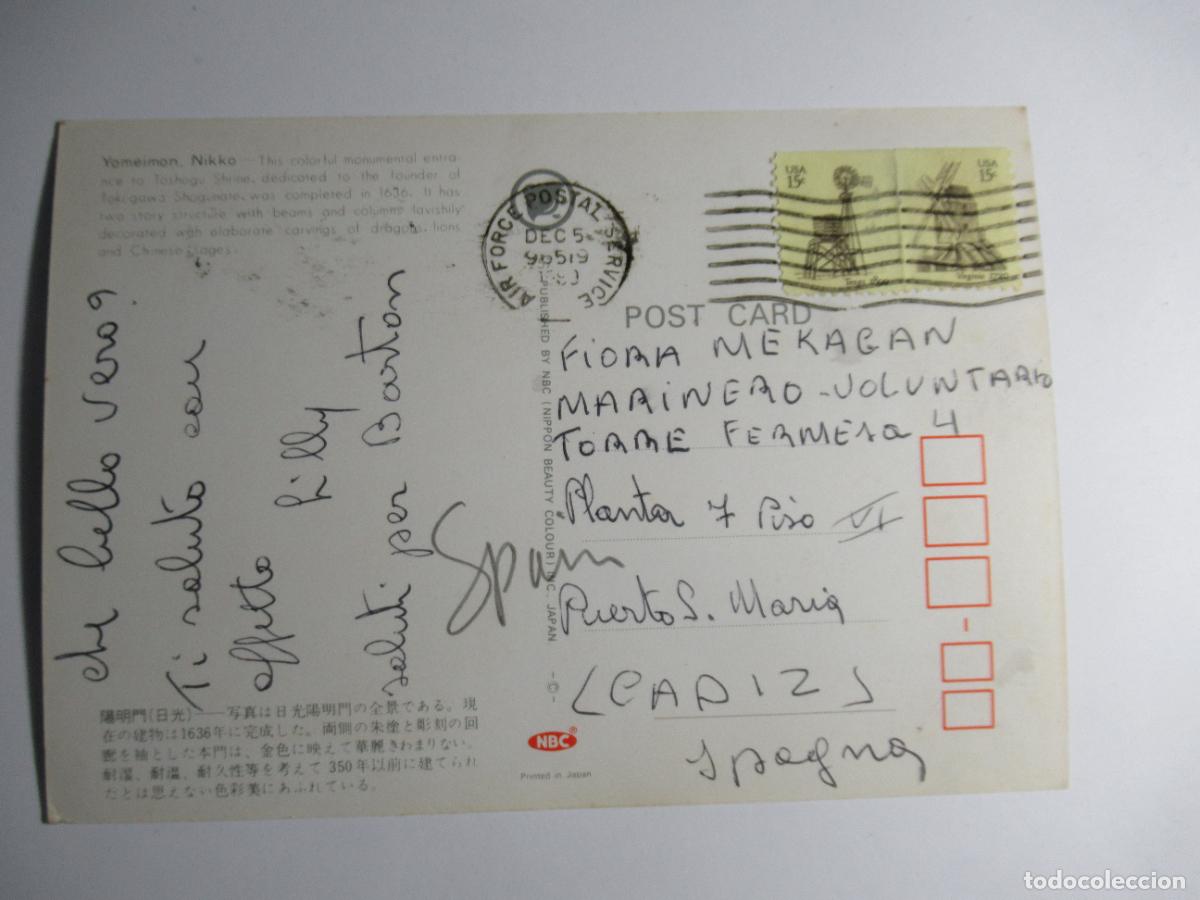 Yomeimon, Nikko — This colorful monumental entra-
nce to Toshogu Shrine, dedicated to the founder of
Tokugawa Shogunate, was completed in 1636. It has
two story structure with beams and columns lavishly
decorated with elaborate carvings of dragons, lions
and Chinese sages.
che bello vero?
Ti saluto con
affetto Lilly
saluti per Barton
Spain
陽明門(日光)——写真は日光陽明門の全景である。現
在の建物は1636年に完成した。両側の朱塗と彫刻の回
廊を袖とした本門は、金色に映えて華麗きわまりない。
耐湿、耐温、耐久性等を考えて350年以前に建てられ
たとは思えない色彩美にあふれている。
AIR FORCE POSTAL SERVICE
DEC 5
96519
USA
15c
USA
15c
Virginia
POST CARD
PUBLISHED BY NBC (NIPPON BEAUTY COLOUR) INC. JAPAN
-©-
NBC®
Printed in Japan
FIORA MEKAGAN
MARINERO-VOLUNTARIO
TORRE FERMESA 4
Planta 7 Piso VI
Puerto S. Maria
(CADIZ)
Spagna
todocoleccion